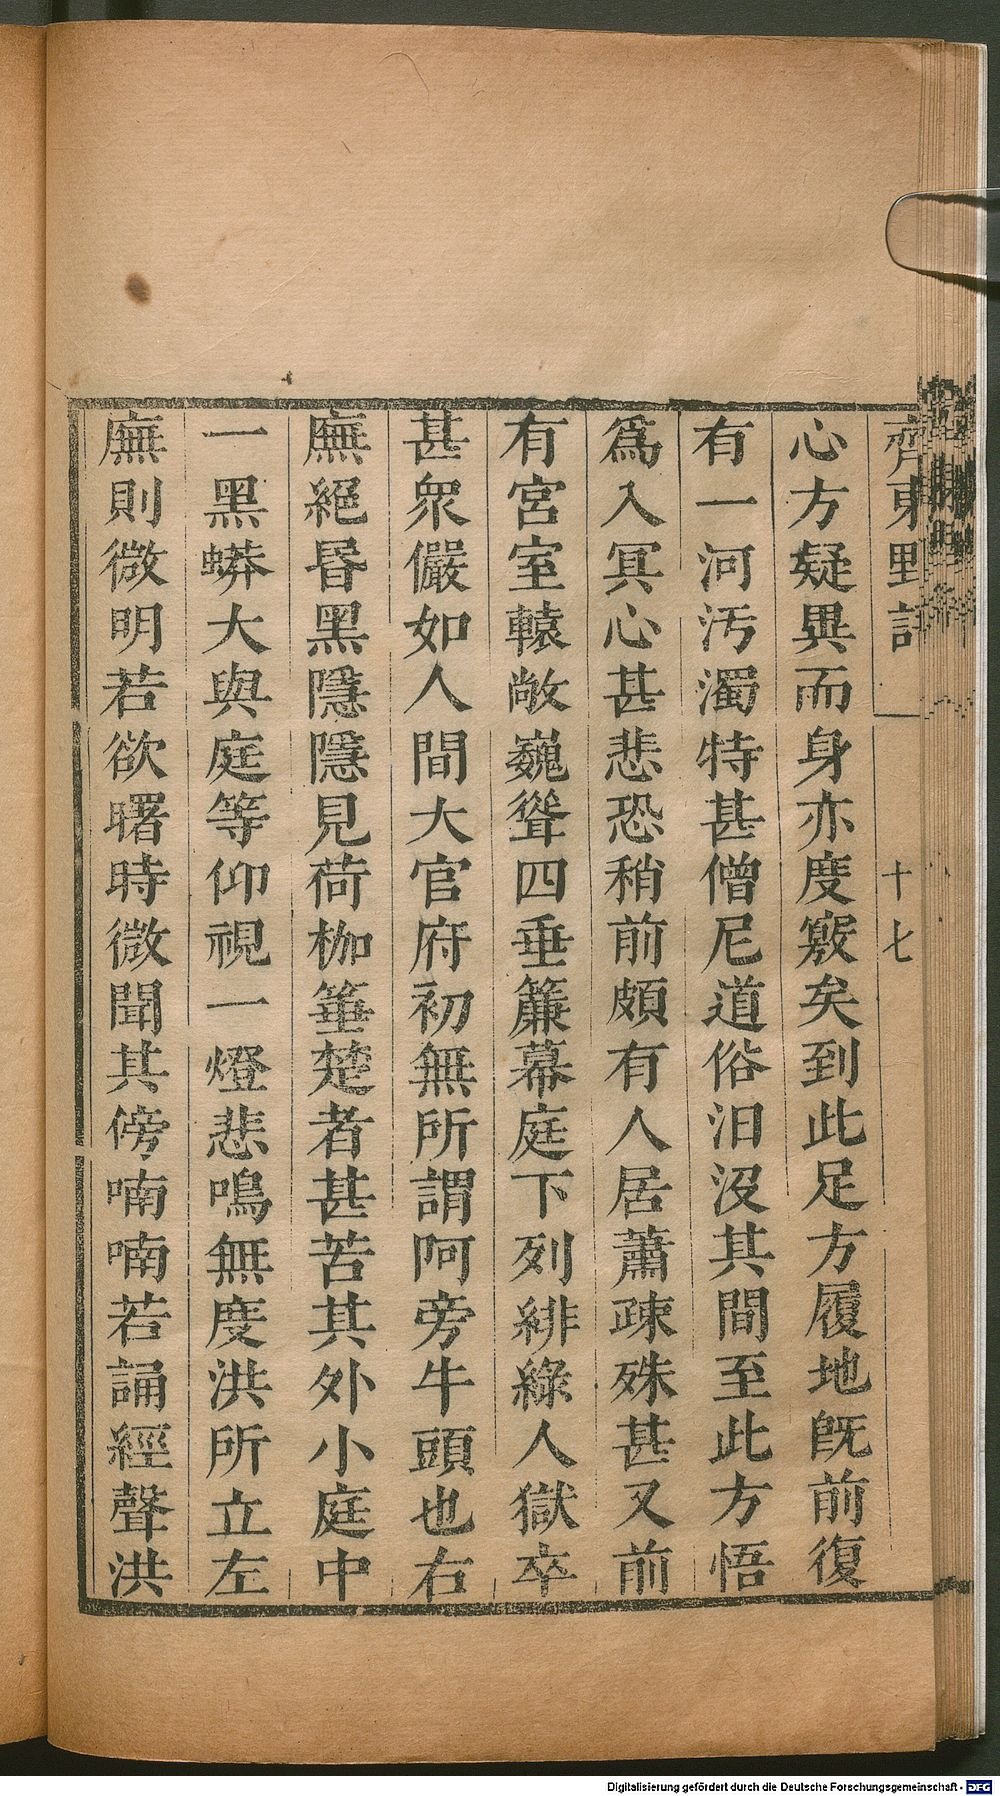 齊東野語 十七
心方疑異而身亦度竅矣到此足方履地旣前復
有一河汚濁特甚僧尼道俗汨沒其間至此方悟
爲入冥心甚悲恐稍前頗有人居蕭疎殊甚又前
有宮室轅敞巍聳四垂簾幕庭下列緋綠人獄卒
甚衆儼如人間大官府初無所謂阿旁牛頭也右
廡絕昏黑隱隱見荷枷箠楚者甚苦其外小庭中
一黑蟒大與庭等仰視一燈悲鳴無度洪所立左
廡則微明若欲曙時微聞其傍喃喃若誦經聲洪
Digitalisierung gefördert durch die Deutsche Forschungsgemeinschaft - DFG